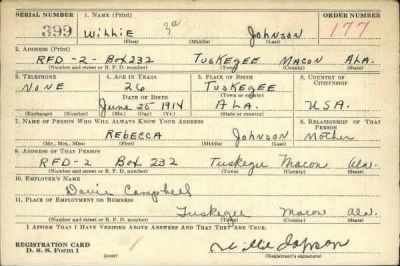 SERIAL NUMBER 1. NAME (Print) ORDER NUMBER
399 Willie 3a Johnson 177
(First) (Middle) (Last)
2. ADDRESS (Print)
RFD-2- Box 232 Tuskegee Macon Ala.
(Number and street or R. F. D. number) (Town) (County) (State)
3. TELEPHONE 4. AGE IN YEARS 5. PLACE OF BIRTH 6. COUNTRY OF CITIZENSHIP
None 26 Tuskegee
DATE OF BIRTH (Town or county)
June 25 1914 ALA. U.S.A.
(Exchange) (Number) (Mo.) (Day) (Yr.) (State or country)
7. NAME OF PERSON WHO WILL ALWAYS KNOW YOUR ADDRESS 8. RELATIONSHIP OF THAT PERSON
Rebecca Johnson Mother
(Mr., Mrs., Miss) (First) (Middle) (Last)
9. ADDRESS OF THAT PERSON
RFD-2 Box 232 Tuskegee Macon Ala.
(Number and street or R. F. D. number) (Town) (County) (State)
10. EMPLOYER'S NAME
Campbell
11. PLACE OF EMPLOYMENT OR BUSINESS
Tuskegee Macon Ala.
(Number and street or R. F. D. number) (Town) (County) (State)
I AFFIRM THAT I HAVE VERIFIED ABOVE ANSWERS AND THAT THEY ARE TRUE.
REGISTRATION CARD
D. S. S. Form 1 Willie